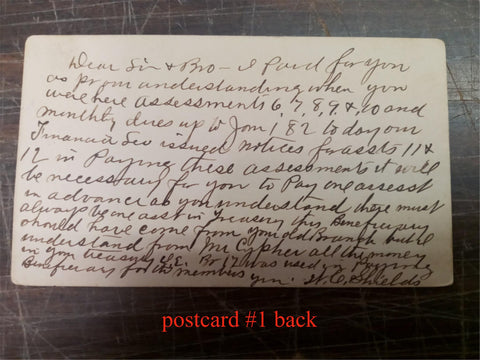 Dear Sir & Bro - I Paid for you
as pr our understanding when you
were here assessments 6, 7, 8, 9, &, 10 and
monthly dues up to Jan 1, 82 to day our
Financial Sec issued notices for assts 11 &
12 in Paying these assessments it will
be necessary for you to Pay one assesst
in advance as you understand there must
always be one asst in Treasury this Beneficiary
should have come from your old Branch but I
understand from Mr Cypher all the money
in your treasury was used in Paying
Beneficiary for members W. C. Shields
postcard #1 back